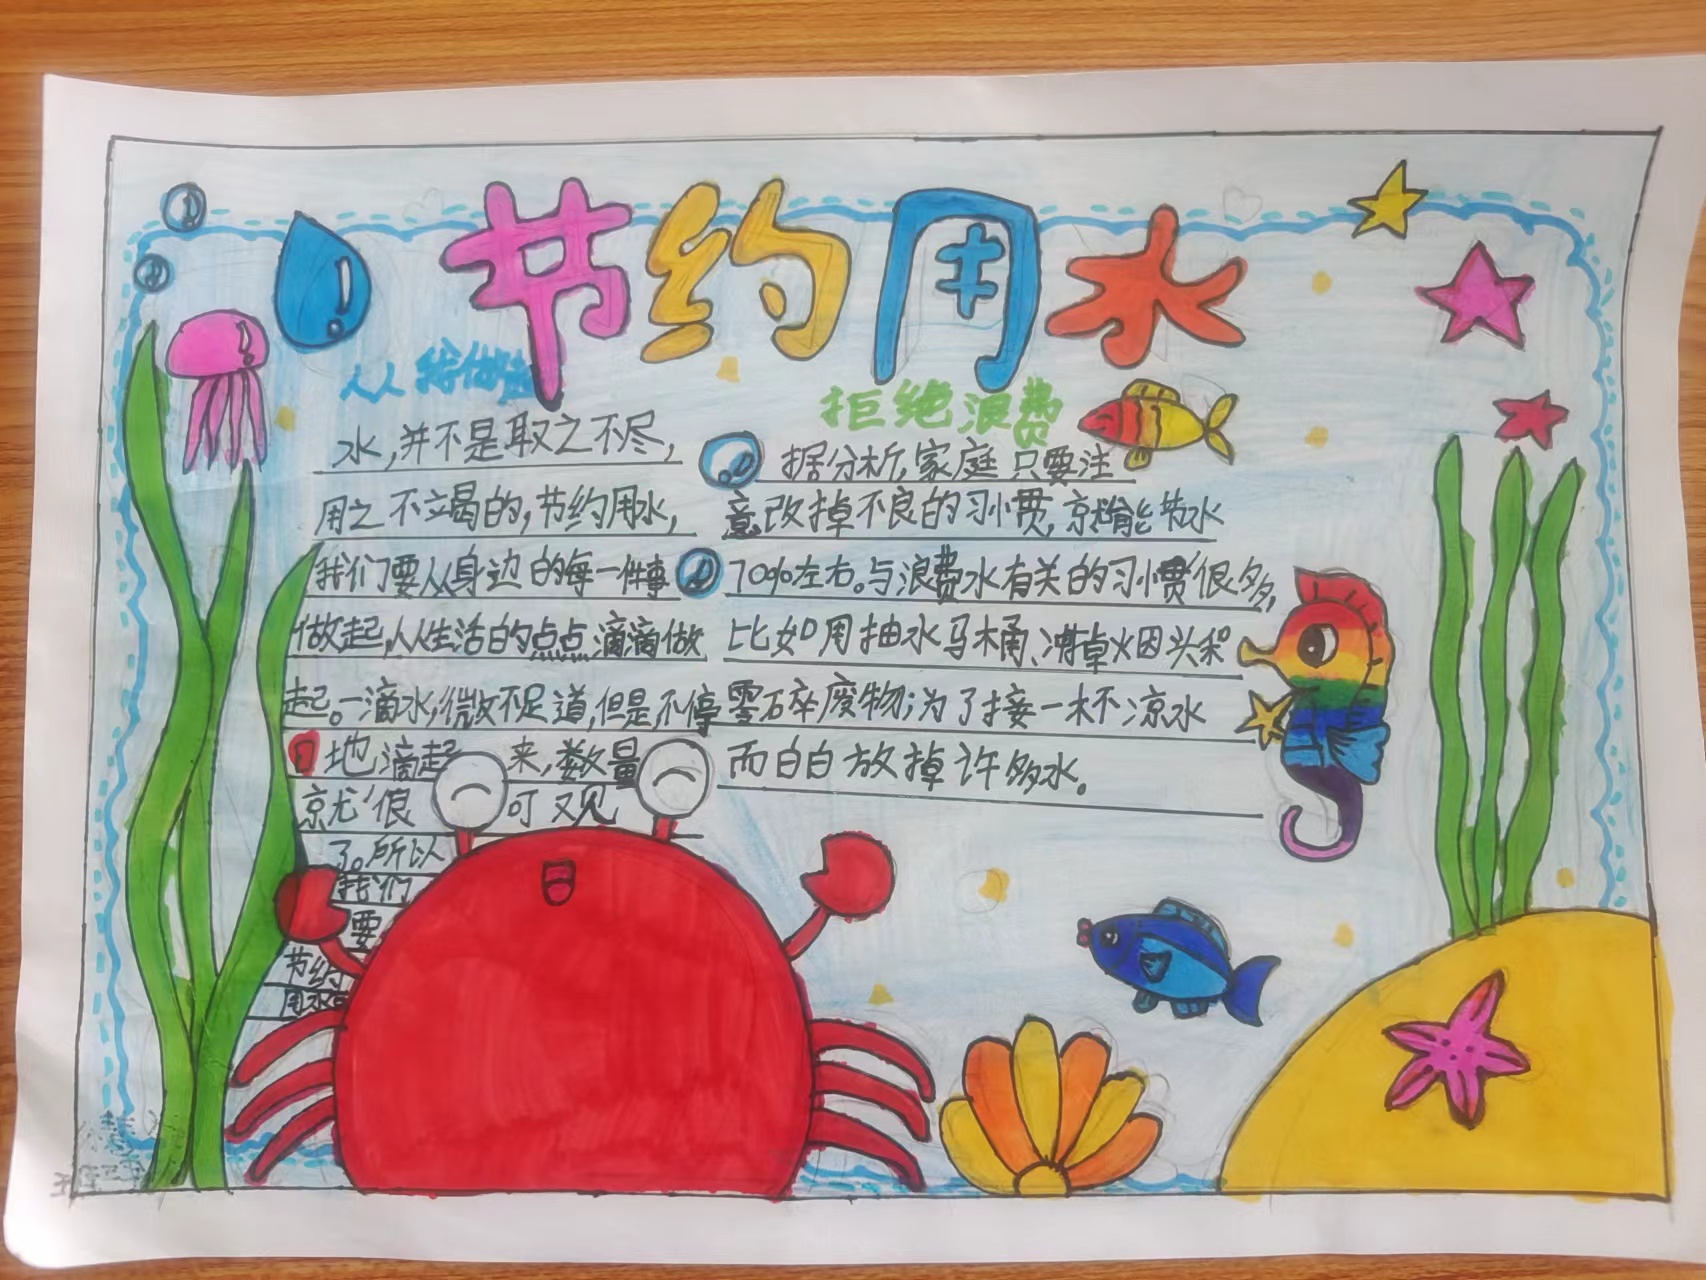 节约用水
从我做起
水,并不是取之不尽,
用之不竭的,节约用水,
我们要从身边的每一件事
做起,从生活的点点滴滴做
起。一滴水,微不足道,但是,不停
地滴起来,数量
就很可观
了。所以
我们
要
节约
用水
拒绝浪费
据分析,家庭只要注
意改掉不良的习惯,就能节水
70%左右。与浪费水有关的习惯很多,
比如用抽水马桶、冲掉烟头和
零碎废物;为了接一杯凉水
而白白放掉许多水。